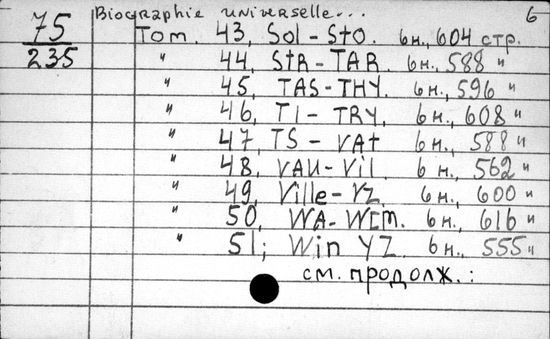 75
235
Biographie universelle...
6
Tom. 43, Sol - Sto. 6н., 604 стр.
" 44, StR - TAR. 6н., 588 "
" 45, TAS - THY. 6н., 596 "
" 46, TI - TRY, 6н., 608 "
" 47, TS - VAt 6н., 588 "
" 48, VAU - Vil. 6н., 562 "
" 49, Ville - VZ. 6н., 600 "
" 50, WA - WIM. 6н., 616 "
" 51; Win YZ. 6н., 555 "
см. продолж. :